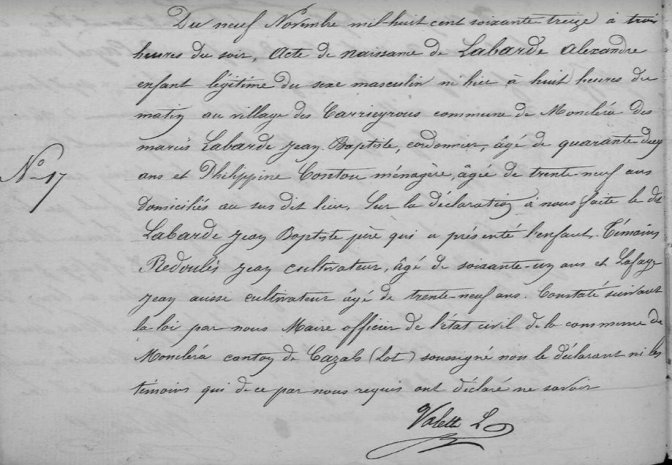 Du neuf Novembre mil huit cent soixante treize à trois
heures du soir, Acte de naissance de Labarde Alexandre
enfant légitime du sexe masculin né hier à huit heures du
matin au village des Carrieyrous commune de Montcléra des
mariés Labarde Jean Baptiste, cordonnier, âgé de quarante deux
N° 17
ans et Philippine Contou ménagère, âgée de trente neuf ans
domiciliés au sus dit lieu. Sur la déclaration à nous faite le dt
Labarde Jean Baptiste père qui a présenté l'enfant. Témoins
Redoulès Jean cultivateur, âgé de soixante-un ans et Lafage
Jean aussi cultivateur âgé de trente-neuf ans. Constaté suivant
la loi par nous Maire officier de l'état civil de la commune de
Montcléra canton de Cazals (Lot) soussigné non le déclarant ni les
témoins qui de ce par nous requis ont déclaré ne savoir
Valett L